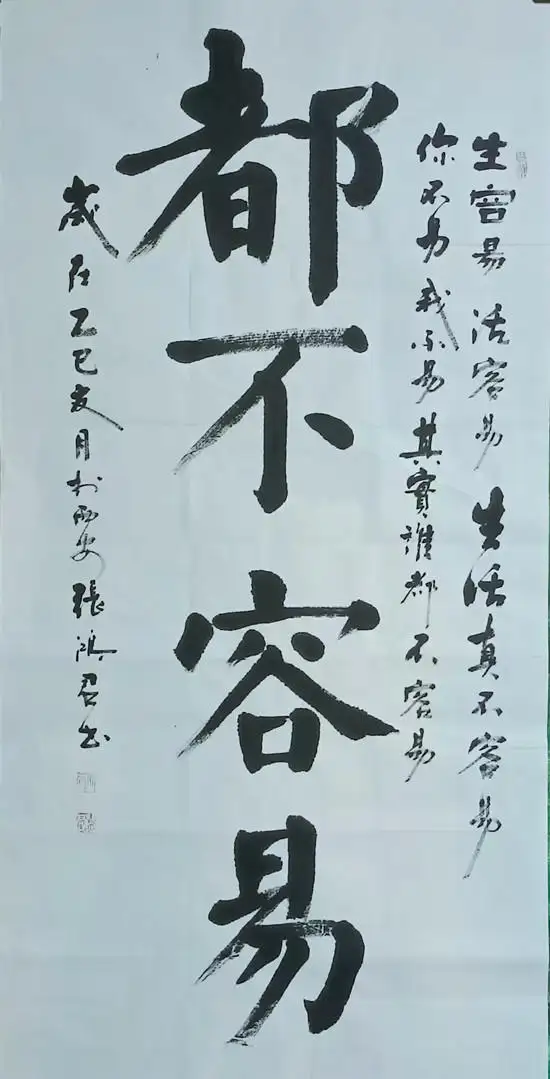 生容易活容易生活真不容易
你不易我不易其實誰都不容易
都不容易
歲在乙巳夏月於西安張鴻君书